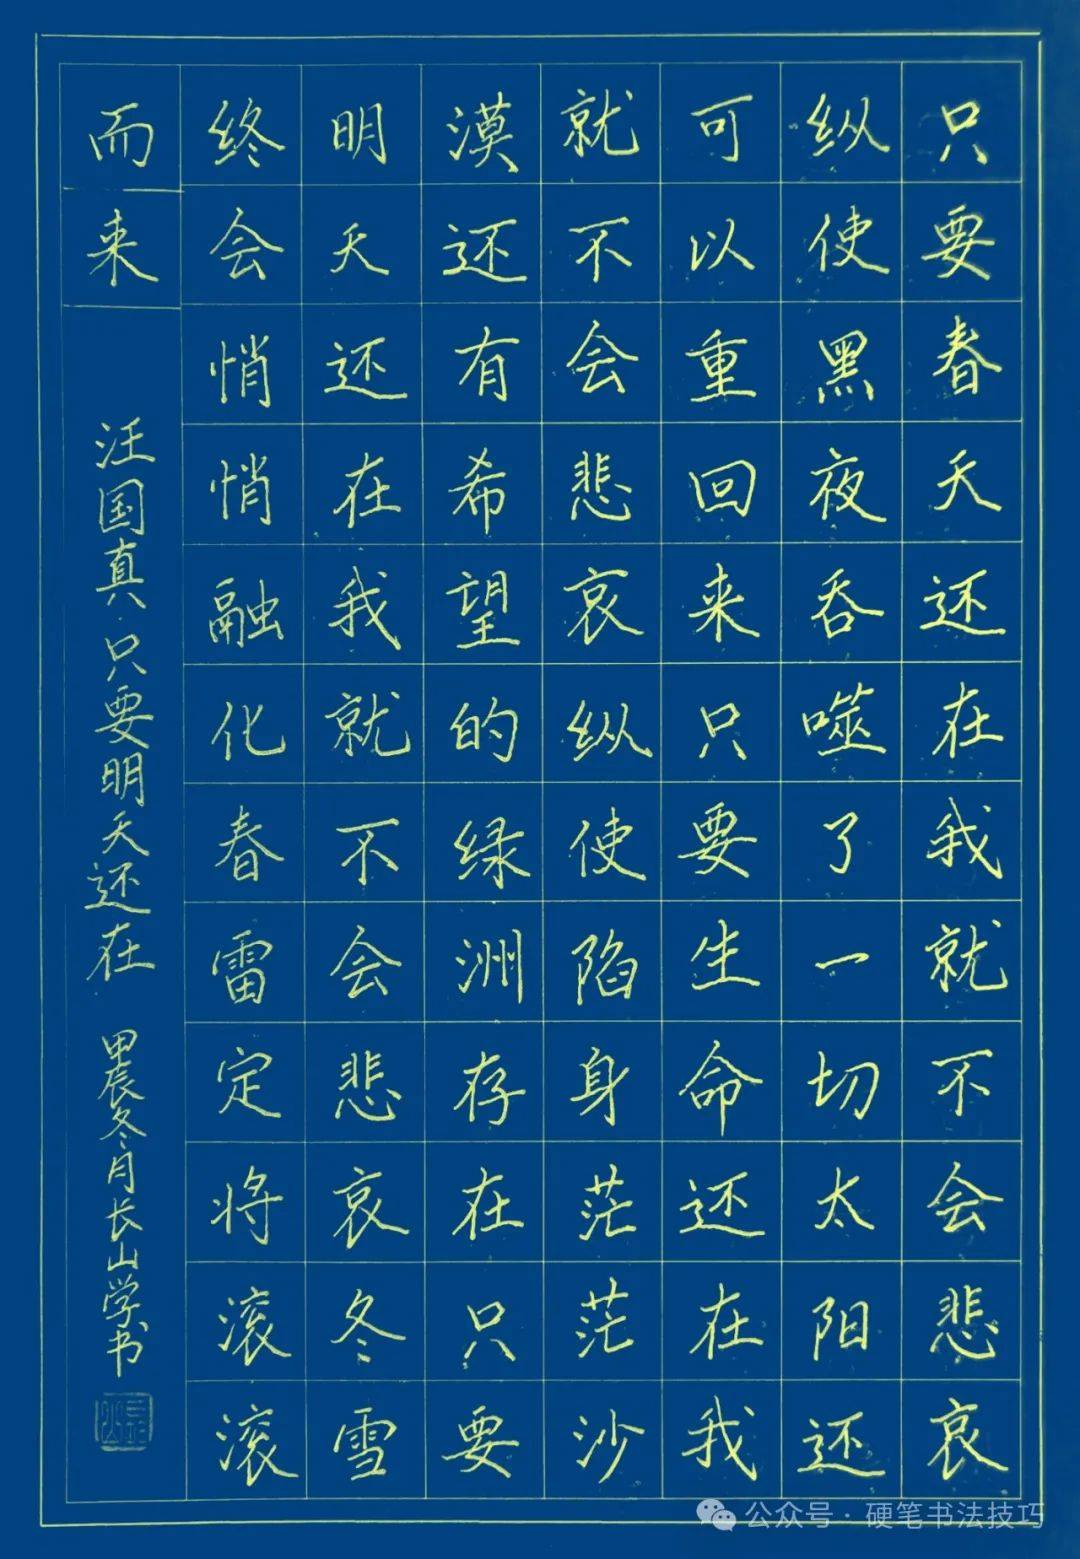 只要春天还在我就不会悲哀
纵使黑夜吞噬了一切太阳还
可以重回来只要生命还在我
就不会悲哀纵使陷身茫茫沙
漠还有希望的绿洲存在只要
明天还在我就不会悲哀冬雪
终会悄悄融化春雷定将滚滚
而来
汪国真只要明天还在 甲辰冬月长山学书
公众号·硬笔书法技巧